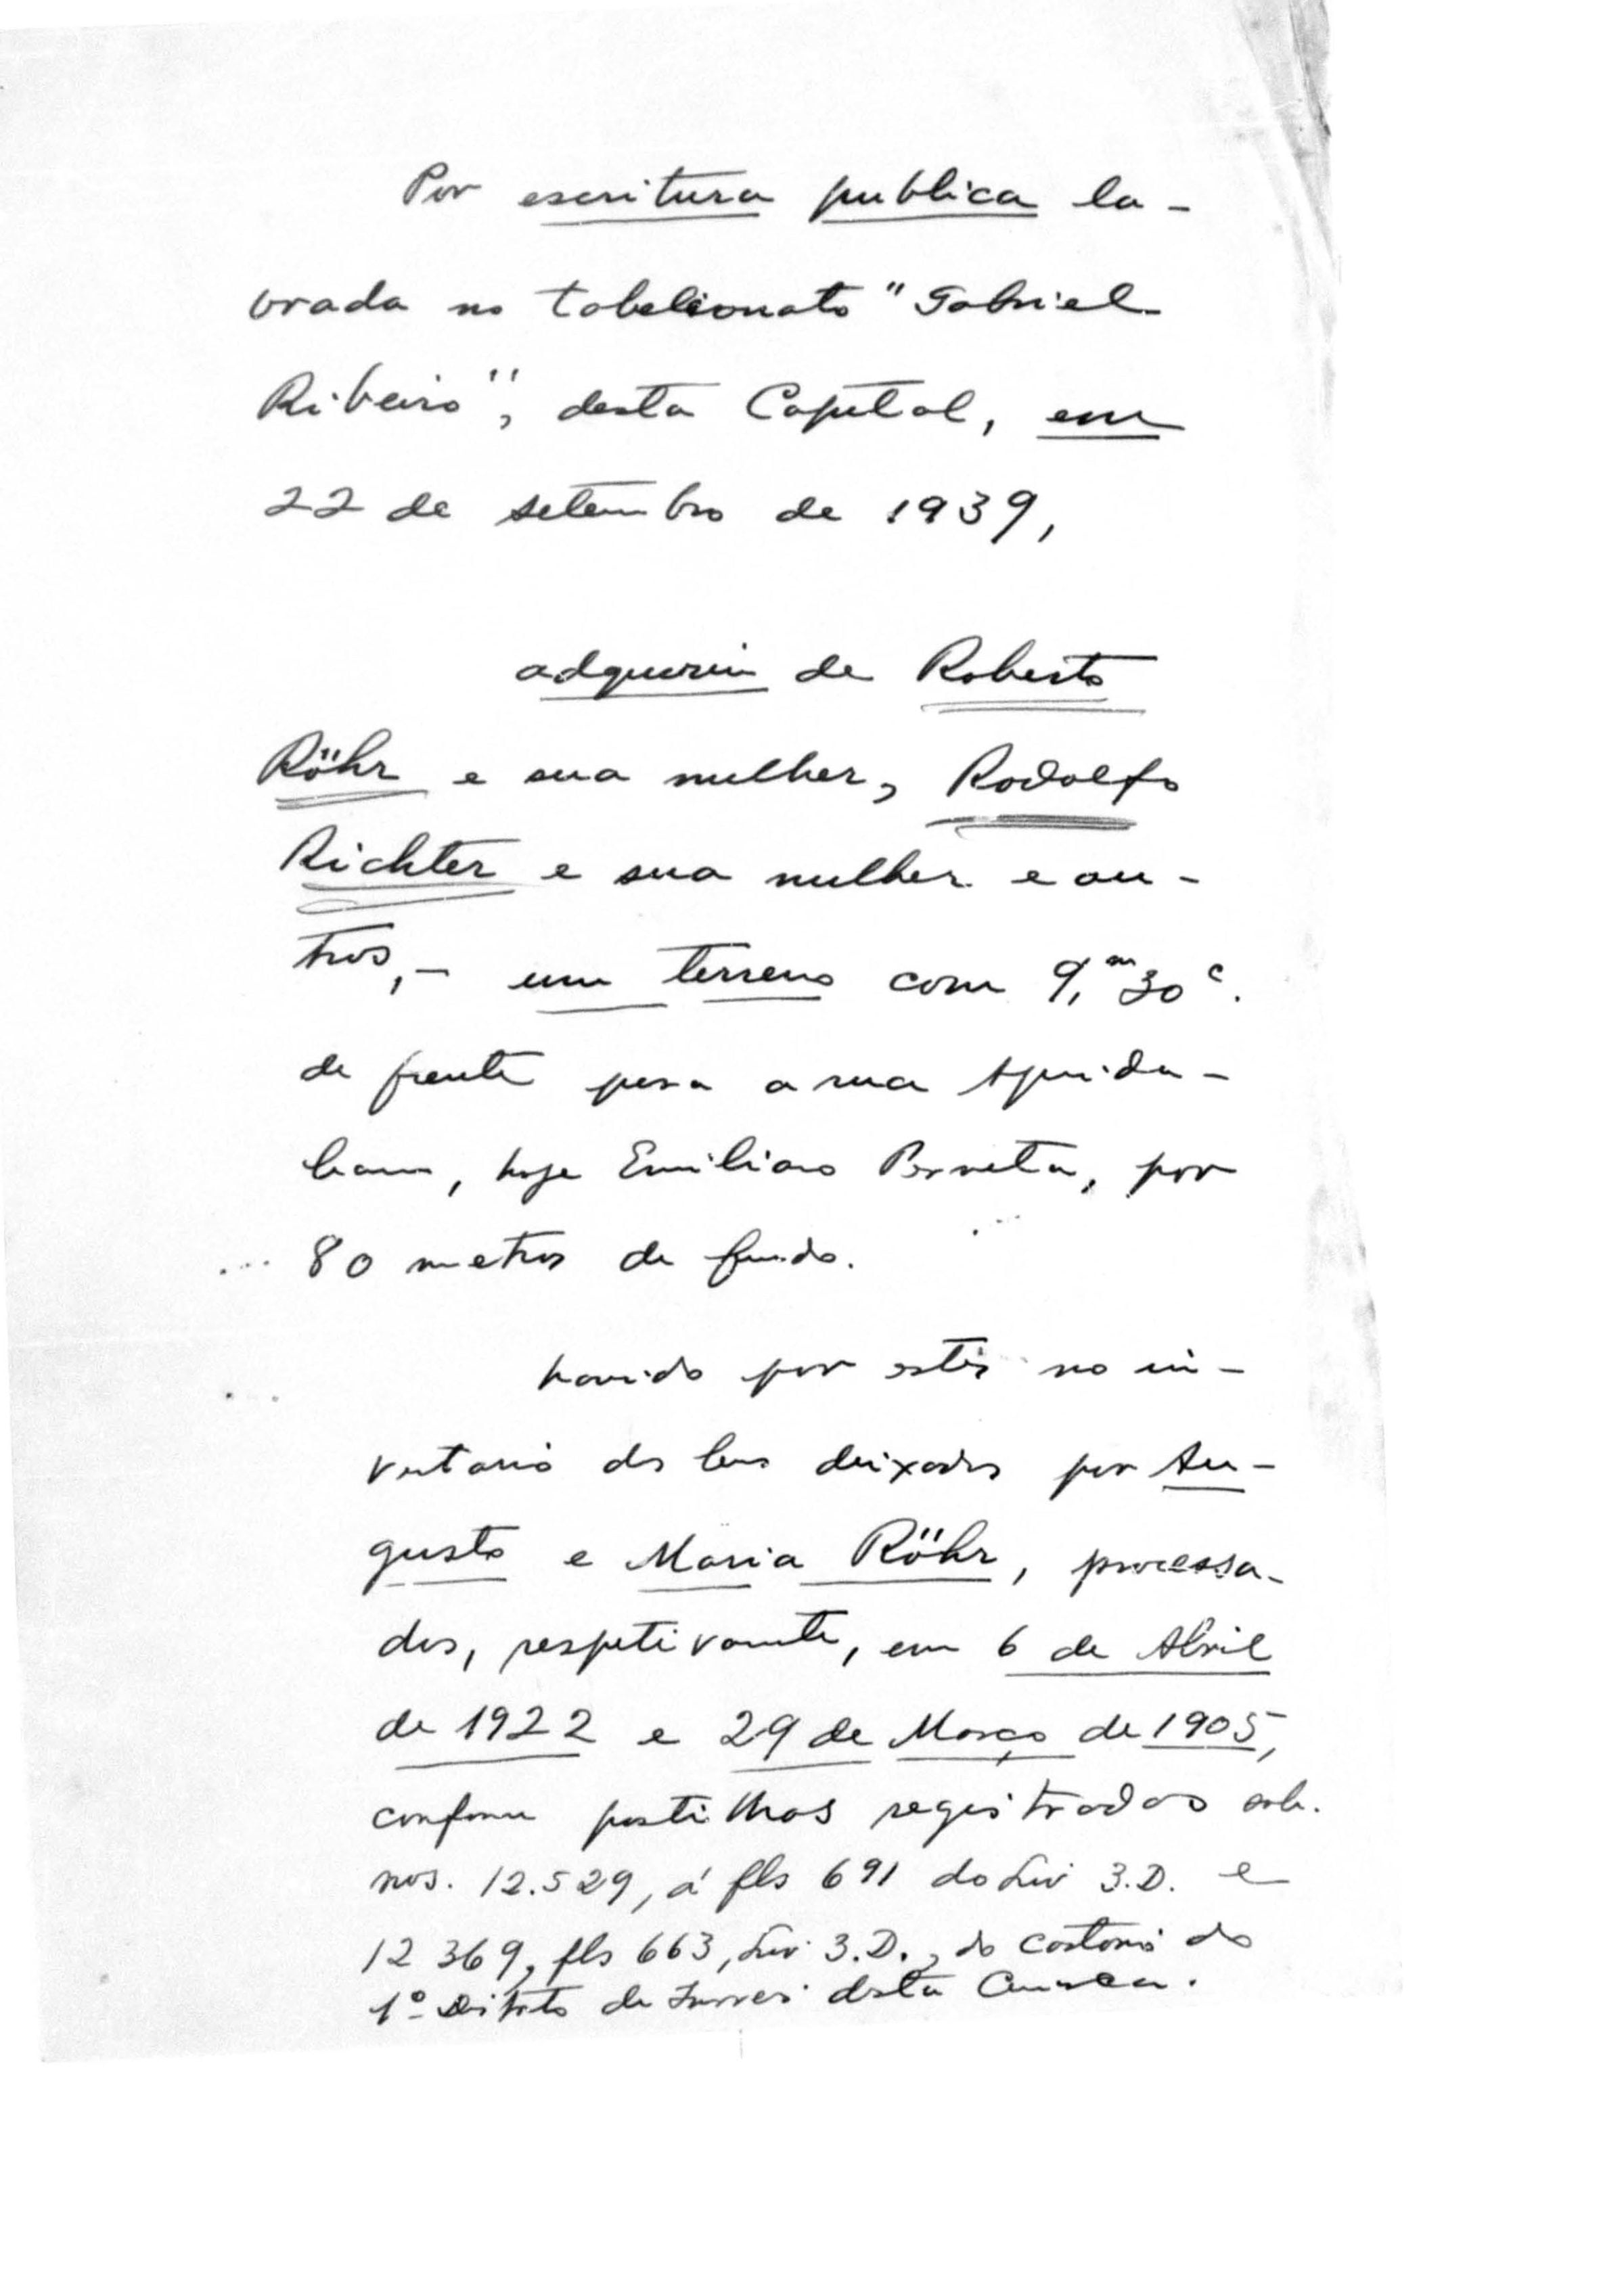 Por escritura publica la-
vrada no tabelionato "Gabriel
Ribeiro", desta Capital, em
22 de setembro de 1939,
adquiriu de Roberto
Röhr e sua mulher, Rodolfo
Richter e sua mulher e ou-
tros, - um terreno com 9,m30c.
de frente para a rua Aquida-
bam, hoje Emiliano Perneta, por
80 metros de fundo.
havido por estes no in-
ventario dos bens deixados por Au-
gusto e Maria Röhr, processa-
dos, respetivamente, em 6 de Abril
de 1922 e 29 de Março de 1905,
conforme partilhas registradas sob.
nos. 12.529, á fls 691 do Liv 3.D. e
12 369, fls 663, Liv 3.D., do cartorio do
1º Distrito de Imoveis desta Comarca.